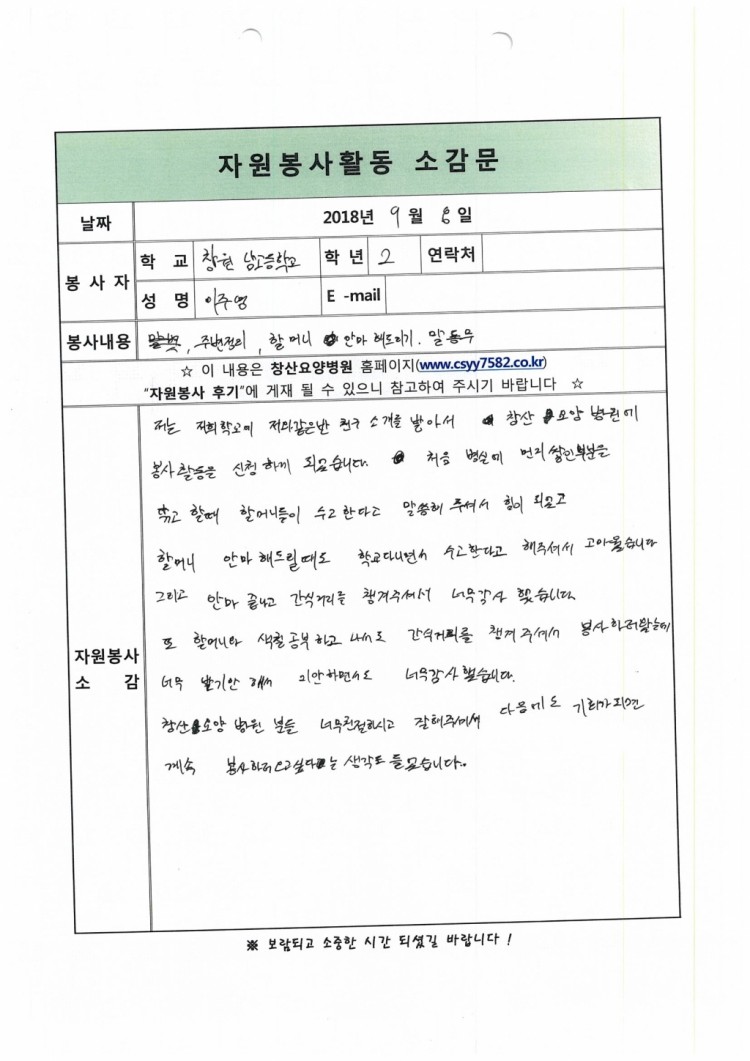 자원봉사활동 소감문
날짜 2018년 9월 8일
봉사자 학교 창원 남고등학교 학년 2 연락처
성명 이주영 E-mail
봉사내용 말벗, 주변정리, 할머니 안마 해드리기. 말동무
☆ 이 내용은 창산요양병원 홈페이지(www.csyy7582.co.kr)
"자원봉사 후기"에 게재 될 수 있으니 참고하여 주시기 바랍니다 ☆
자원봉사 소감
저는 저희학교에 저와같은반 친구 소개를 받아서 창산 요양 병원에
봉사활동을 신청 하게 되었습니다. 처음 병실에 먼지 쌓인부분을
닦고 할때 할어니들이 수고한다고 말씀해 주셔서 힘이 되었고
할머니 안마 해드릴때도 학교다니면서 수고한다고 해주셔서 고마웠습니다
그리고 안마 끝나고 간식거리를 챙겨주셔서 너무감사 했습니다.
또 할머니와 색칠공부하고 나서도 간식거리를 챙겨 주셔서 봉사하러왔는데
너무 받기만 해서 미안하면서도 너무감사했습니다.
창산요양 병원 분들 너무친절하시고 잘해주셔서 다음에도 기회가되면
계속 봉사하러오고싶다는 생각도 들었습니다.
※ 보람되고 소중한 시간 되셨길 바랍니다 !